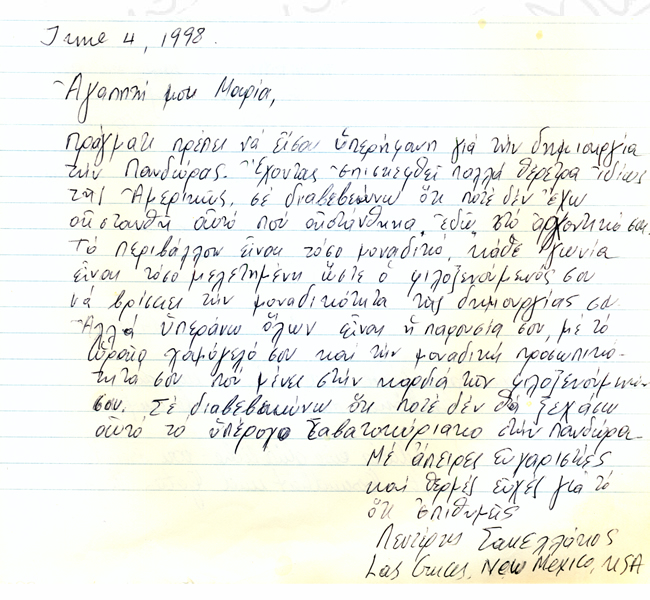 June 4, 1998.
Ἀγαπητή μου Μαρία,
πράγματι πρέπει νά εἶσαι ὑπερήφανη γιά τήν δημιουργία
τήν Πανδώρας. Ἔχοντας ἐπισκεφθεῖ πολλά θέρετρα ἰδίως
τῆς Ἀμερικῆς, σέ διαβεβαιώνω ὅτι ποτέ δέν ἔχω
αἰστανθῆ αὐτό πού αἰστάνθηκα ἐδῶ στό ἀρχοντικό σου.
Τό περιβάλλον εἶναι τόσο μοναδικό, κάθε γωνία
εἶναι τόσο μελετημένη ὥστε ὁ φιλοξενούμενός σου
νά βρίσκει τήν μοναδικότητα τῆς δημιουργίας σου.
Ἀλλά ὑπεράνω ὅλων εἶναι ἡ παρουσία σου, μέ τό
ὡραῖο χαμόγελό σου καί τήν μοναδική προσωπικό-
τητά σου πού μένει στήν καρδιά τῶν φιλοξενούμενων
σου. Σέ διαβεβαιώνω ὅτι ποτέ δέν θά ξεχάσω
αὐτό τό ὑπέροχο Σαβατοκύριακο στήν Πανδώρα.
Μέ ἄπειρες εὐχαριστίες
καί θερμές εὐχές γιά τό
ὅτι ἐπιθυμῆς
Λευτέρης Σακελλάριος
Las Cruces, New Mexico, USA